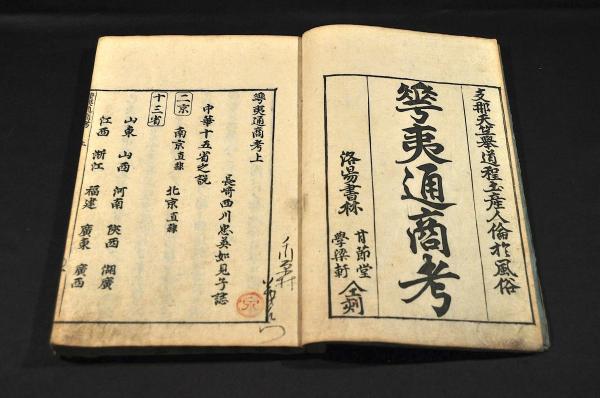 支那天竺舉道程土産人倫於風俗
華夷通商考
洛陽書林 甘節堂
學梁軒 仝刻
華夷通商考上
長崎西川忠英如見子誌
中華十五省之説
二京 南京直隷 北京直隷
十三省
山東 山西 河南 陝西 湖廣
江西 浙江 福建 廣東 廣西